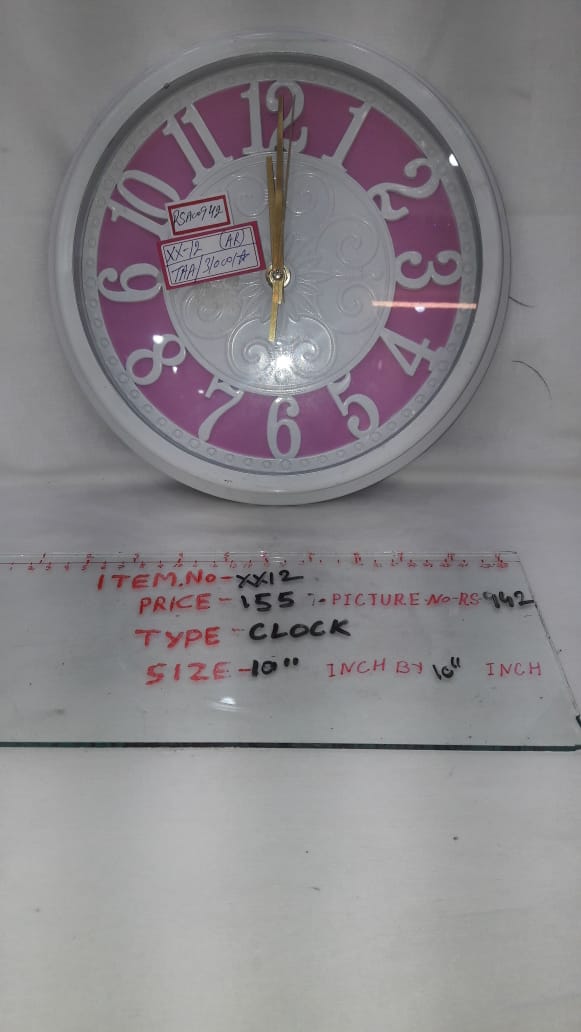 12
1
2
3
4
5
6
7
8
9
10
11
RSA00942
XX-12 (AR)
ITEM.No-XX12
PRICE-155 PICTURE No-RS-942
TYPE-CLOCK
SIZE-10" INCH BY 10" INCH